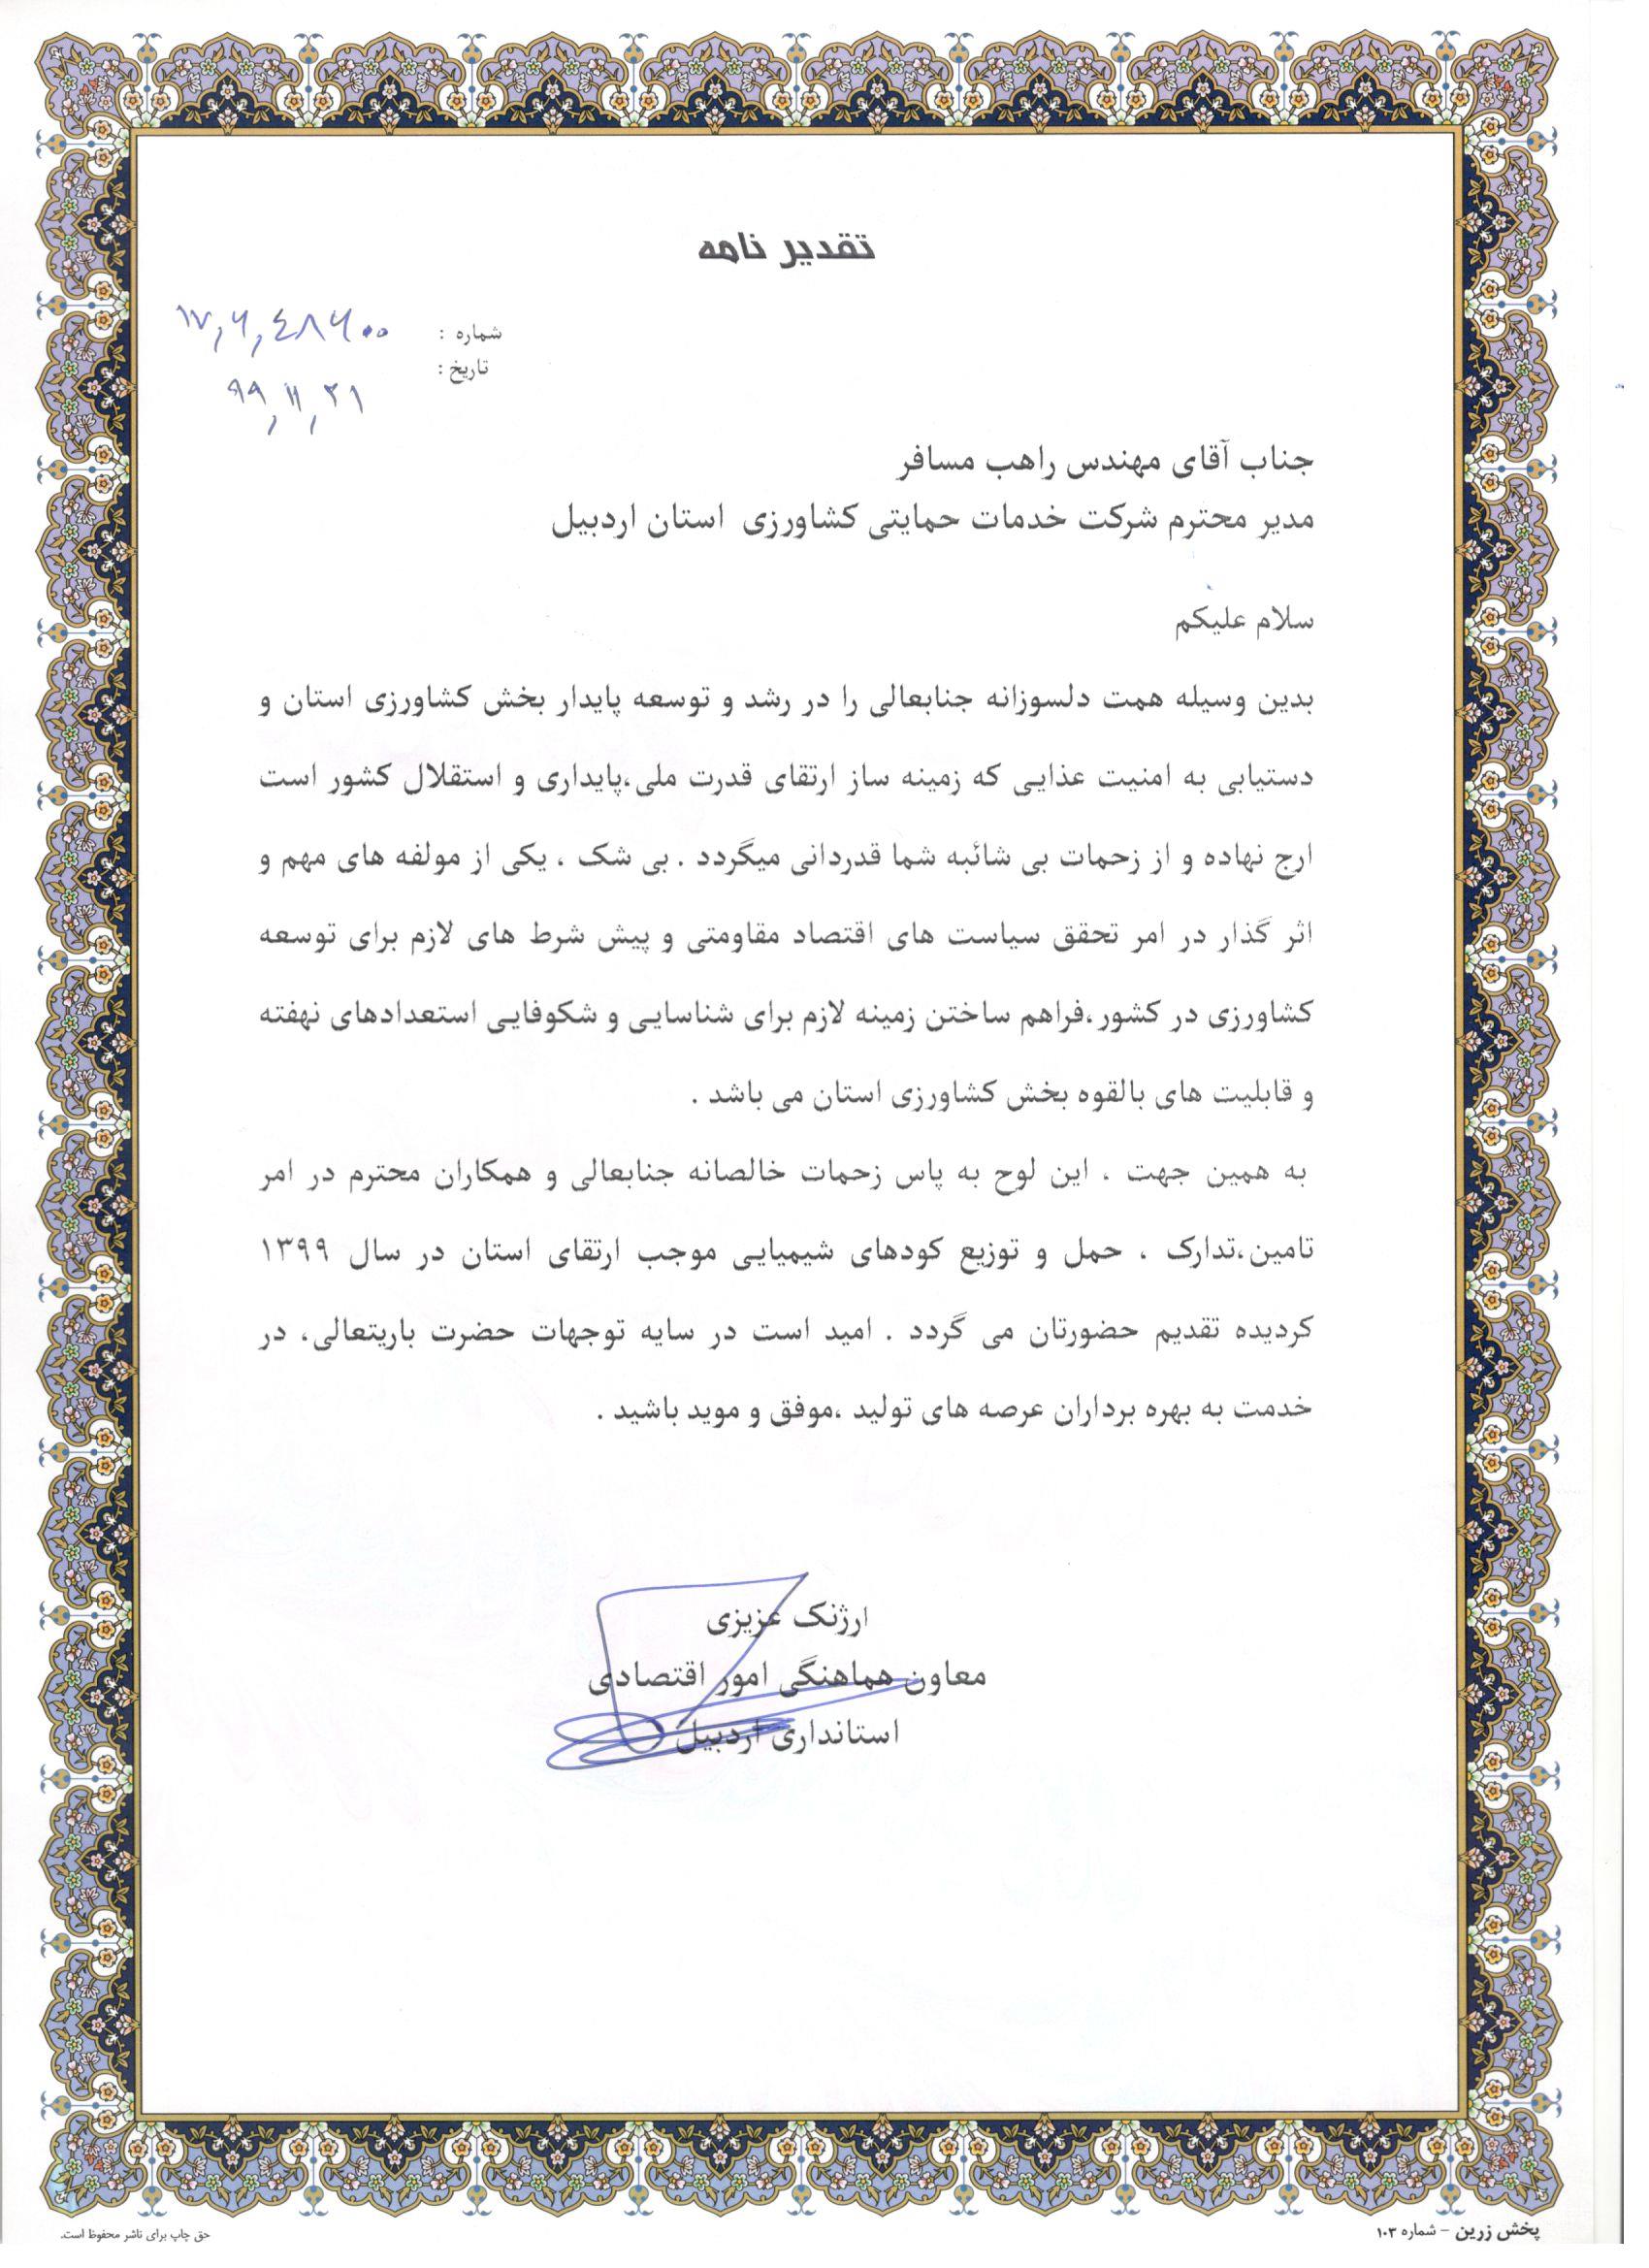 تقدیر نامه
شماره : ۱۷٫۶٫۴۸۶۰۰
تاریخ: ۹۹٫۱۱٫۲۱
جناب آقای مهندس راهب مسافر
مدیر محترم شرکت خدمات حمایتی کشاورزی استان اردبیل
سلام علیکم
بدین وسیله همت دلسوزانه جنابعالی را در رشد و توسعه پایدار بخش کشاورزی استان و
دستیابی به امنیت عذایی که زمینه ساز ارتقای قدرت ملی،پایداری و استقلال کشور است
ارج نهاده و از زحمات بی شائبه شما قدردانی میگردد . بی شک ، یکی از مولفه های مهم و
اثر گذار در امر تحقق سیاست های اقتصاد مقاومتی و پیش شرط های لازم برای توسعه
کشاورزی در کشور،فراهم ساختن زمینه لازم برای شناسایی و شکوفایی استعدادهای نهفته
و قابلیت های بالقوه بخش کشاورزی استان می باشد .
به همین جهت ، این لوح به پاس زحمات خالصانه جنابعالی و همکاران محترم در امر
تامین،تدارک ، حمل و توزیع کودهای شیمیایی موجب ارتقای استان در سال ۱۳۹۹
کردیده تقدیم حضورتان می گردد . امید است در سایه توجهات حضرت باریتعالی، در
خدمت به بهره برداران عرصه های تولید ،موفق و موید باشید .
ارژنک عزیزی
معاون هماهنگی امور اقتصادی
استانداری اردبیل
پخش زرین - شماره ۱۰۳
حق چاپ برای ناشر محفوظ است.